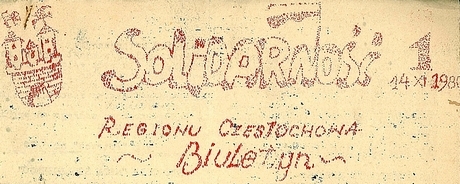 SOLIDARNOŚĆ 1
14 XI 1980
REGIONU CZĘSTOCHOWA
~ Biuletyn ~